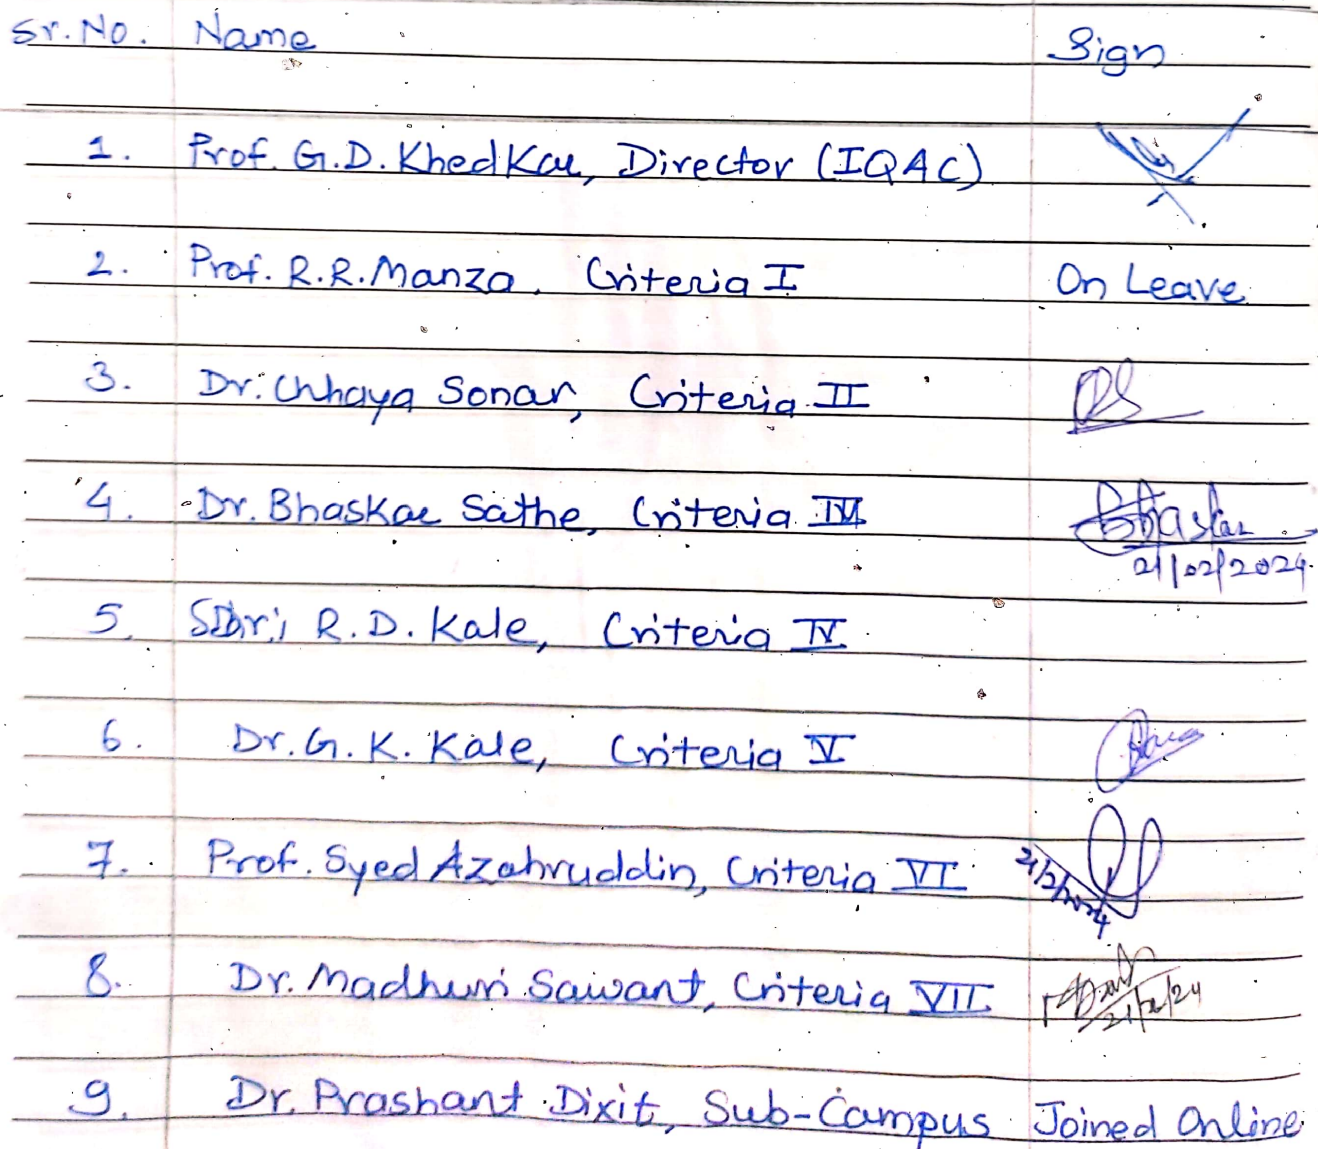 Sr. No. Name Sign
1. Prof. G.D. Khedkar, Director (IQAC)
2. Prof. R.R. Manza, Criteria I On Leave
3. Dr. Chhaya Sonar, Criteria II
4. Dr. Bhaskar Sathe, Criteria III Bhaskar
21/02/2024.
5. Shri R.D. Kale, Criteria IV
6. Dr. G. K. Kale, Criteria V
7. Prof. Syed Azahruddin, Criteria VI 21/2/2024
8. Dr. Madhuri Sawant, Criteria VII
21/2/24
9. Dr. Prashant Dixit, Sub-Campus Joined Online